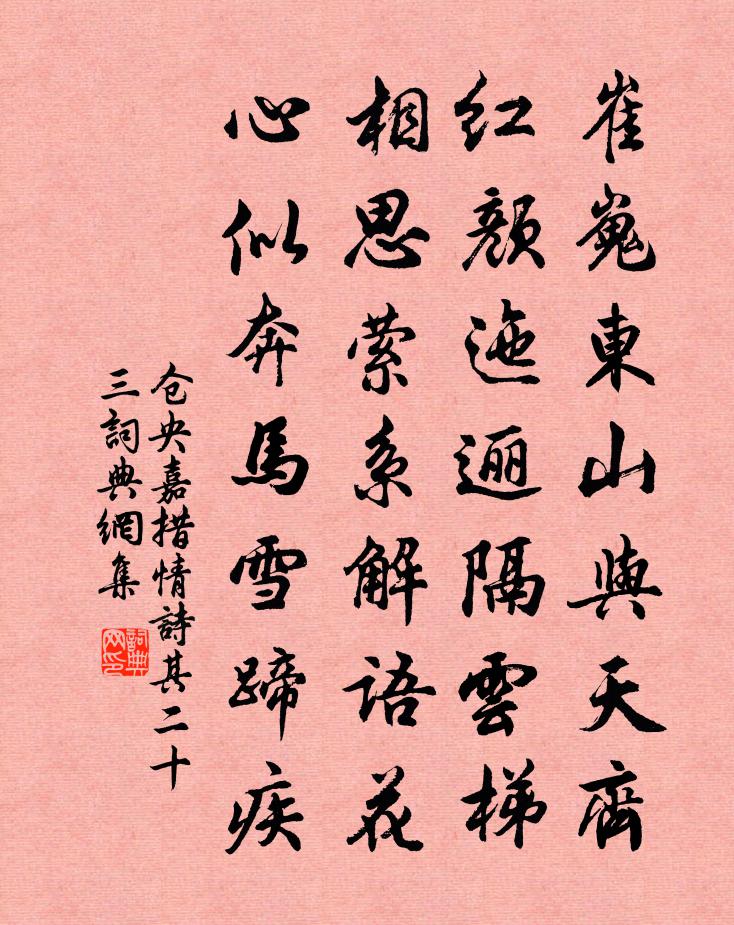 崔嵬東山與天齊
红顏迤逦隔雲梯
相思萦系解语花
心似奔馬雪蹄疾
仓央嘉措情詩其二十
三詞典網集
詞典
网印